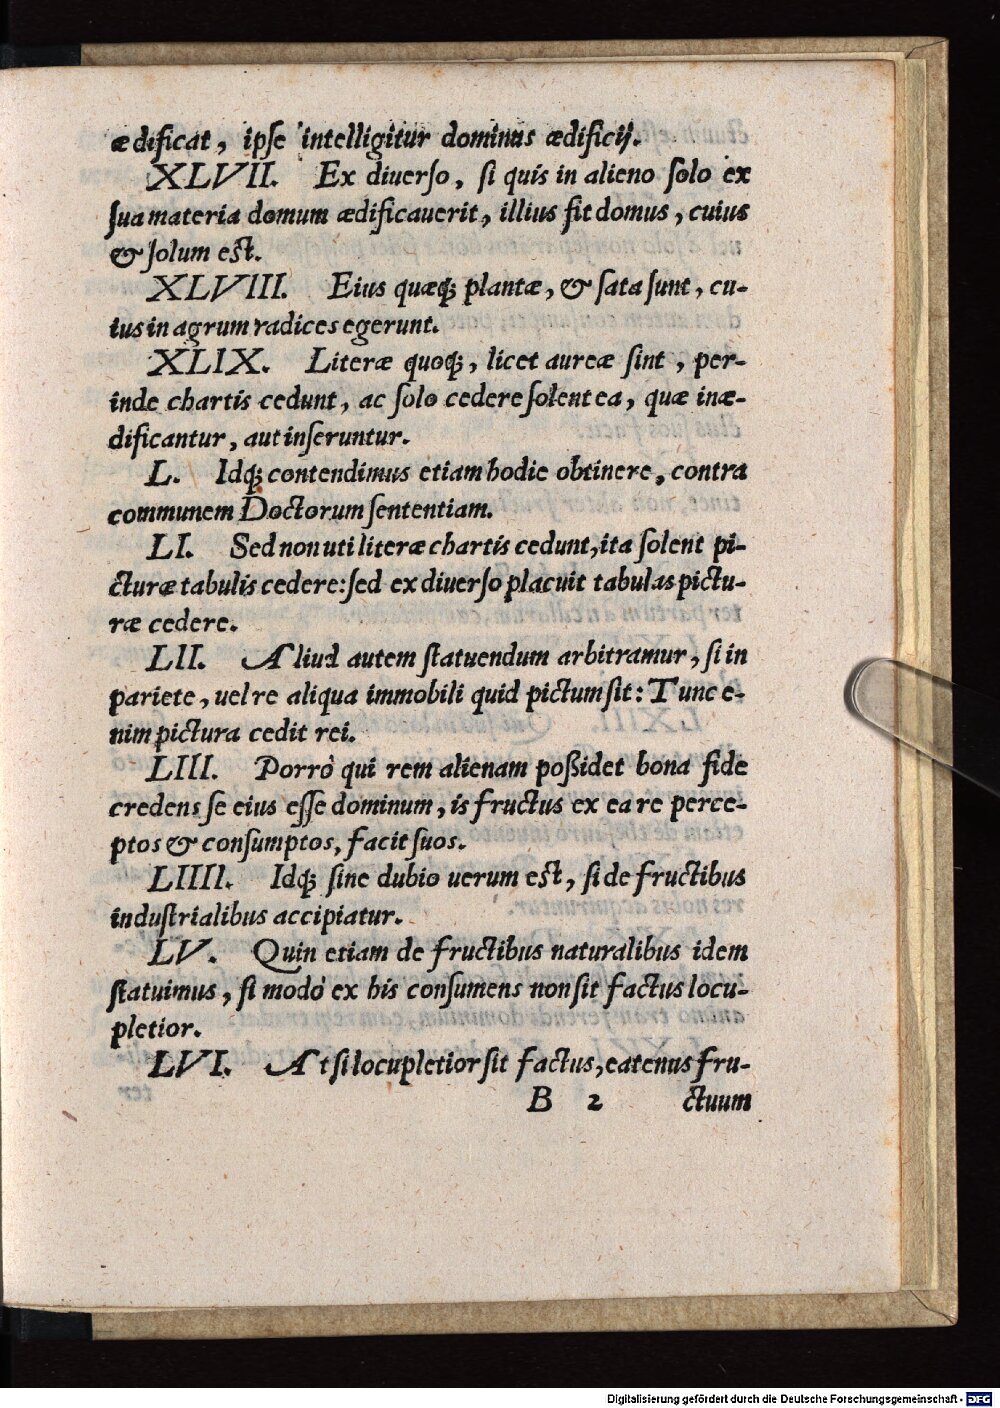 ædificat, ipſe intelligitur dominus ædificij.
XLVII. Ex diuerſo, ſi quis in alieno ſolo ex
ſua materia domum ædificauerit, illius fit domus, cuius
& ſolum eſt.
XLVIII. Eius quæq; plantæ, & ſata ſunt, cu-
ius in agrum radices egerunt.
XLIX. Literæ quoq;, licet aureæ ſint, per-
inde chartis cedunt, ac ſolo cedere ſolent ea, quæ inæ-
dificantur, aut inſeruntur.
L. Idq; contendimus etiam hodie obtinere, contra
communem Doctorum ſententiam.
LI. Sed non uti literæ chartis cedunt, ita ſolent pi-
cturæ tabulis cedere: ſed ex diuerſo placuit tabulas pictu-
ræ cedere.
LII. Aliud autem ſtatuendum arbitramur, ſi in
pariete, uel re aliqua immobili quid pictum ſit: Tunc e-
nim pictura cedit rei.
LIII. Porrò qui rem alienam poßidet bona fide
credens ſe eius eſſe dominum, is fructus ex ea re perce-
ptos & conſumptos, facit ſuos.
LIIII. Idq; ſine dubio uerum eſt, ſi de fructibus
induſtrialibus accipiatur.
LV. Quin etiam de fructibus naturalibus idem
ſtatuimus, ſi modò ex his conſumens non ſit factus locu-
pletior.
LVI. At ſi locupletior ſit factus, eatenus fru-
B 2 ctuum
Digitalisierung gefördert durch die Deutsche Forschungsgemeinschaft - DFG